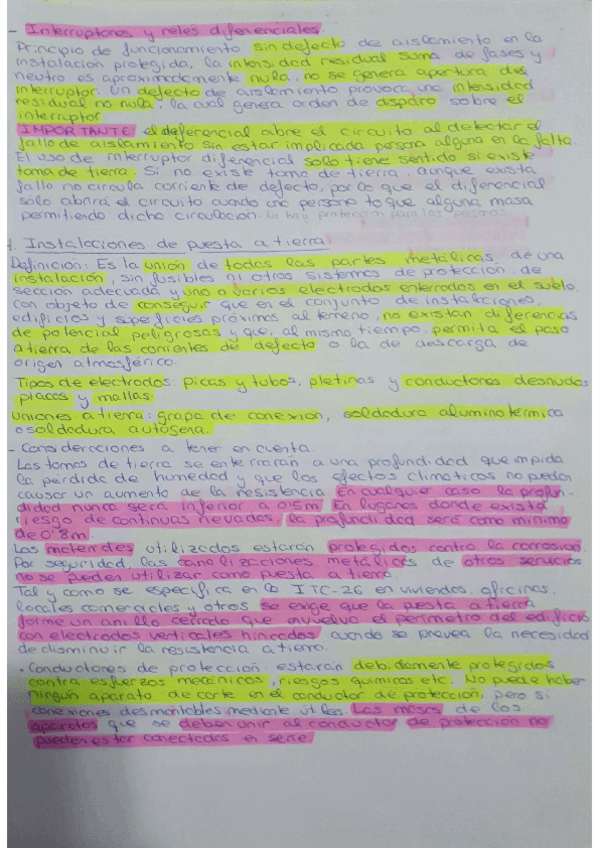 - Interruptores y reles diferenciales.
Principio de funcionamiento sin defecto de aislamiento en la
instalación protegida, la intensidad residual suma de fases y
neutro es aproximadamente nula, no se genera apertura del
interruptor. Un defecto de aislamiento provoca una intensidad
residual no nula, la cual genera orden de disparo sobre el
interruptor.
IMPORTANTE: el deferencial abre el circuito al detectar el
fallo de aislamiento sin estar implicada persona alguna en la falta.
El uso de interruptor diferencial solo tiene sentido si existe
toma de tierra. Si no existe toma de tierra, aunque exista
fallo no circula corriente de defecto, por lo que el diferencial
sólo abrirá el circuito cuando una persona toque alguna masa
permitiendo dicha circulación. No hay protección para las personas
. Instalaciones de puesta a tierra:
Definición: Es la unión de todas las partes metálicas de una
instalación, sin fusibles ni otros sistemas de protección, de
sección adecuada y uno o varios electrodos enterrados en el suelo,
con objeto de conseguir que en el conjunto de instalaciones,
edificios y superficies próximas al terreno, no existan diferencias
de potencial peligrosas y que, al mismo tiempo, permita el paso
a tierra de las corrientes de defecto o la de descarga de
origen atmosférico.
Tipos de electrodos: picas y tubos, pletinas y conductores desnudos
placas y mallas.
Uniones a tierra: grapa de conexión, soldadura aluminotérmica
o soldadura autógena.
- Consideraciones a tener en cuenta.
Las tomas de tierra se enterrarán a una profundidad que impida
la pérdida de humedad y que los efectos climaticos no puedan
causar un aumento de la resistencia. En cualquier caso la profun-
didad nunca será inferior a 0'5m. En lugares donde exista
riesgo de continuas nevadas, la profundidad será como mínimo
de 0'8m.
Los materiales utilizados estarán protegidos contra la corrosión.
Por seguridad, las canalizaciones metálicas de otros servicios
no se pueden utilizar como puesta a tierra.
Tal y como se especifica en la ITC-26 en viviendas, oficinas,
locales comerciales y otros se exige que la puesta a tierra
forme un anillo cerrado que envuelva el perímetro del edificio
con electrodos verticales hincados cuando se prevea la necesidad
de disminuir la resistencia a tierra.
· Conductores de protección: estarán debidamente protegidos
contra esfuerzos mecánicos, riesgos químicos etc. No puede haber
ningún aparato de corte en el conductor de protección, pero si
conexiones desmontables mediante útiles. Las masas de los
aparatos que se deben unir al conductor de protección no
pueden estar conectadas en serie.